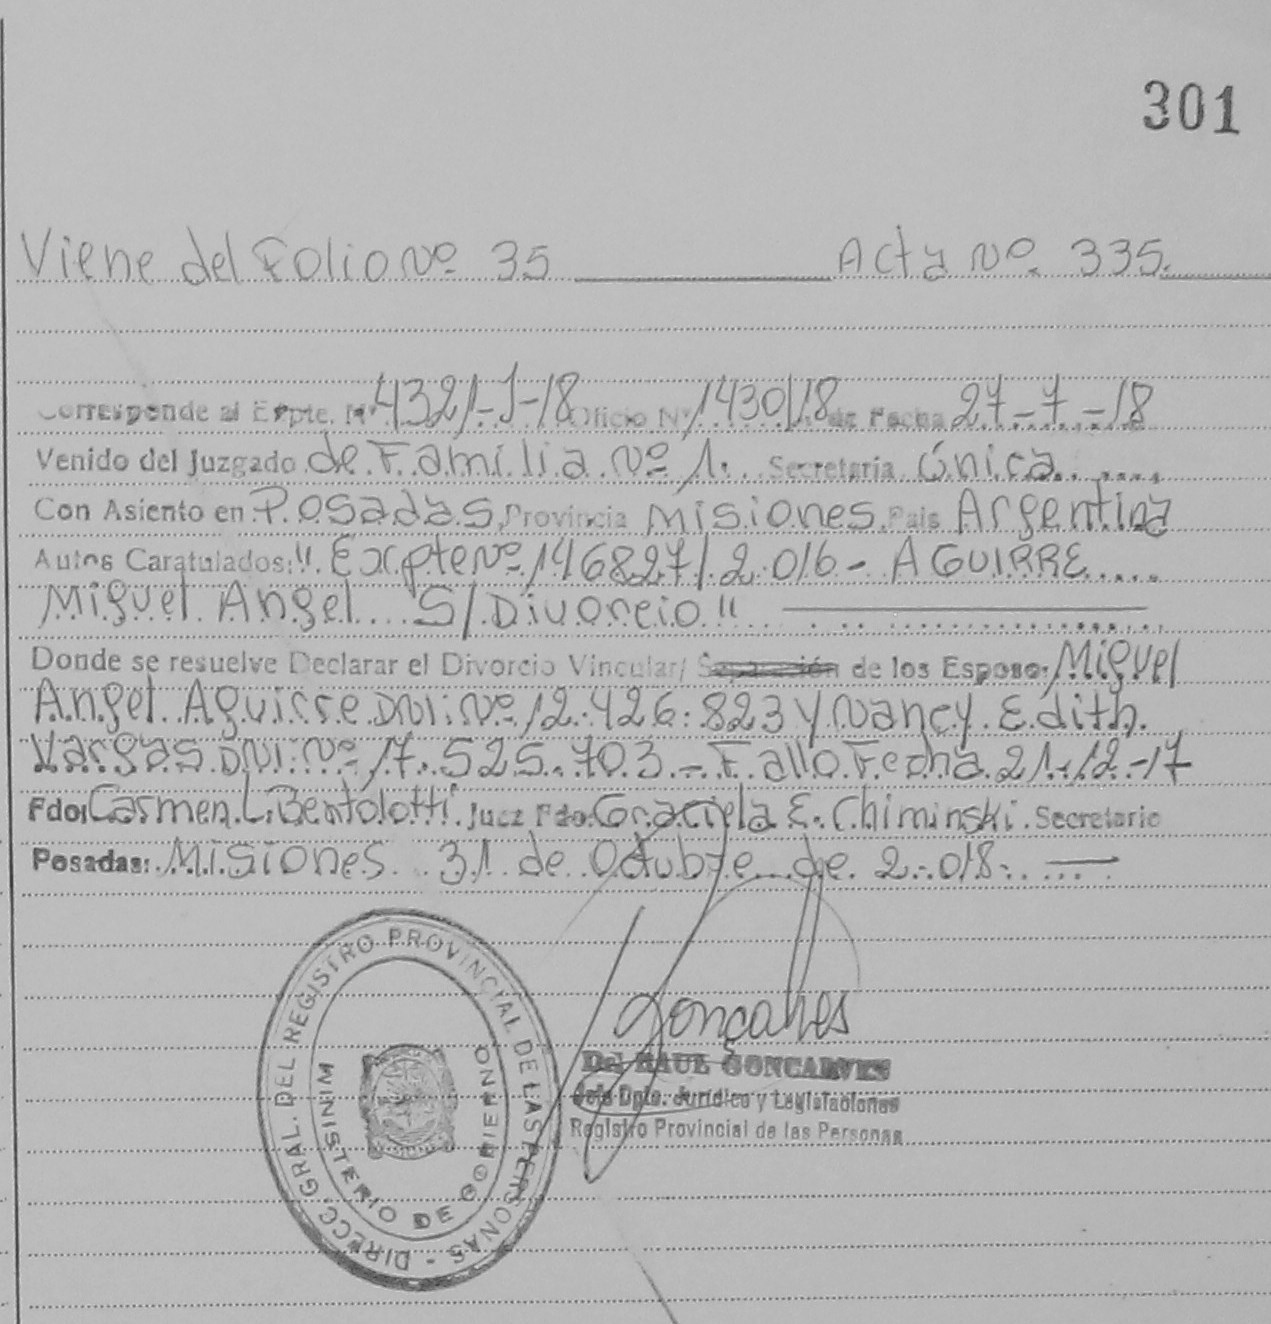 301
Viene del Folio Nº 35 Acta Nº 335.
Corresponde al Expte. Nº 4321-J-18 Oficio Nº 1430/18 de Fecha 27-7-18
Venido del Juzgado de Familia Nº 1. Secretaria Única
Con Asiento en Posadas, Provincia Misiones País Argentina
Autos Caratulados: "Expte Nº 146827/2.016 - AGUIRRE
Miguel Angel S/Divorcio"
Donde se resuelve Declarar el Divorcio Vincular/ Separación de los Esposo: Miguel
Angel Aguirre DNI: Nº 12.426.823 y Nancy Edith
Vargas DNI: Nº 17.525.703 - Fallo Fecha 21-12-17
Fdo: Carmen L. Bertolotti Juez Fdo: Graciela E. Chiminski. Secretario
Posadas: Misiones 31 de Octubre de 2.018.
Goncalves
RAUL GONCALVES
Jefe Dpto. Jurídico y Legislaciones
Registro Provincial de las Personas
DIRECC. GRAL. DEL REGISTRO PROVINCIAL DE LAS PERSONAS -
MINISTERIO DE GOBIERNO